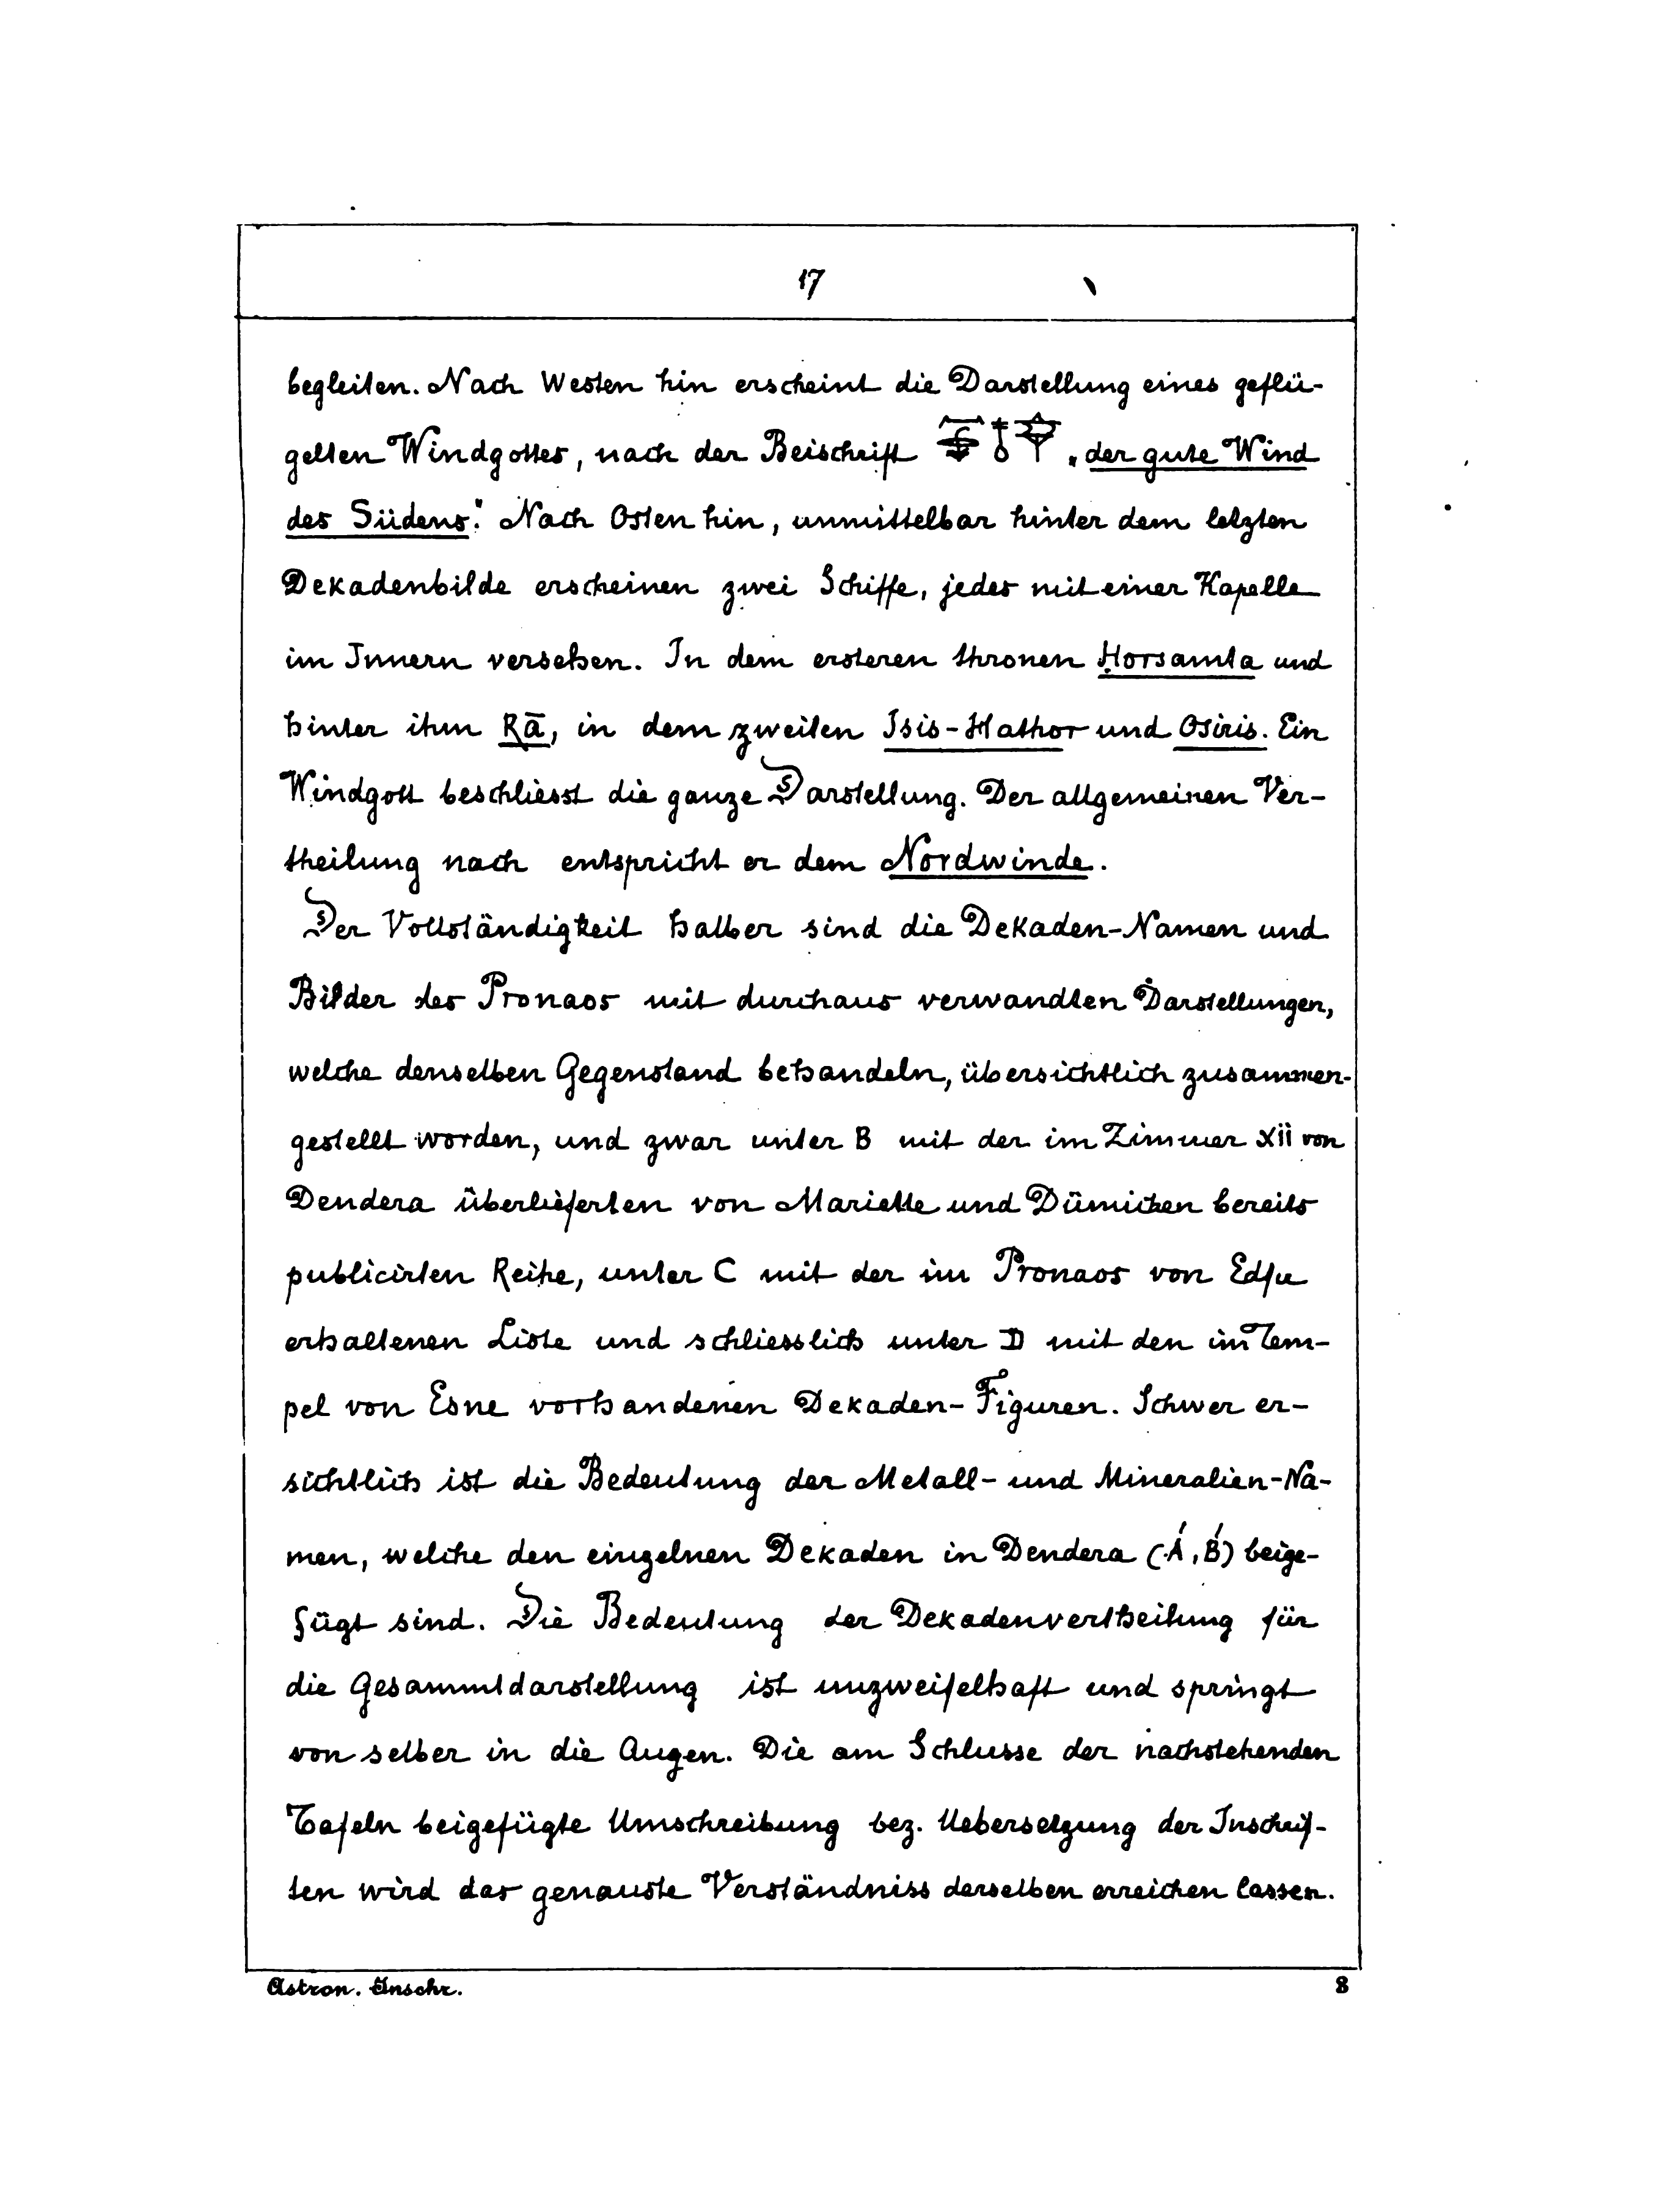 17
begleiten. Nach Westen hin erscheint die Darstellung eines geflü-
gelten Windgottes, nach der Beischrift „der gute Wind
des Südens". Nach Osten hin, unmittelbar hinter dem letzten
Dekadenbilde erscheinen zwei Schiffe, jedes mit einer Kapelle
im Innern versehen. In dem ersteren thronen Ḥorsamta und
hinter ihm Rā, in dem zweiten Isis-Hathor und Osiris. Ein
Windgott beschliesst die ganze Darstellung. Der allgemeinen Ver-
theilung nach entspricht er dem Nordwinde.
Der Vollständigkeit halber sind die Dekaden-Namen und
Bilder des Pronaos mit durchaus verwandten Darstellungen,
welche denselben Gegenstand behandeln, übersichtlich zusammen-
gestellt worden, und zwar unter B mit der im Zimmer XII von
Dendera überlieferten von Mariette und Dümichen bereits
publicirten Reihe, unter C mit der im Pronaos von Edfu
erhaltenen Liste und schliesslich unter D mit den im Tem-
pel von Esne vorhandenen Dekaden-Figuren. Schwer er-
sichtlich ist die Bedeutung der Metall- und Mineralien-Na-
men, welche den einzelnen Dekaden in Dendera (Á, B́) beige-
fügt sind. Die Bedeutung der Dekadenvertheilung für
die Gesammtdarstellung ist unzweifelhaft und springt
von selber in die Augen. Die am Schlusse der nachstehenden
Tafeln beigefügte Umschreibung bez. Uebersetzung der Inschrif-
ten wird das genauste Verständniss derselben erreichen lassen.
Astron. Inschr. 3